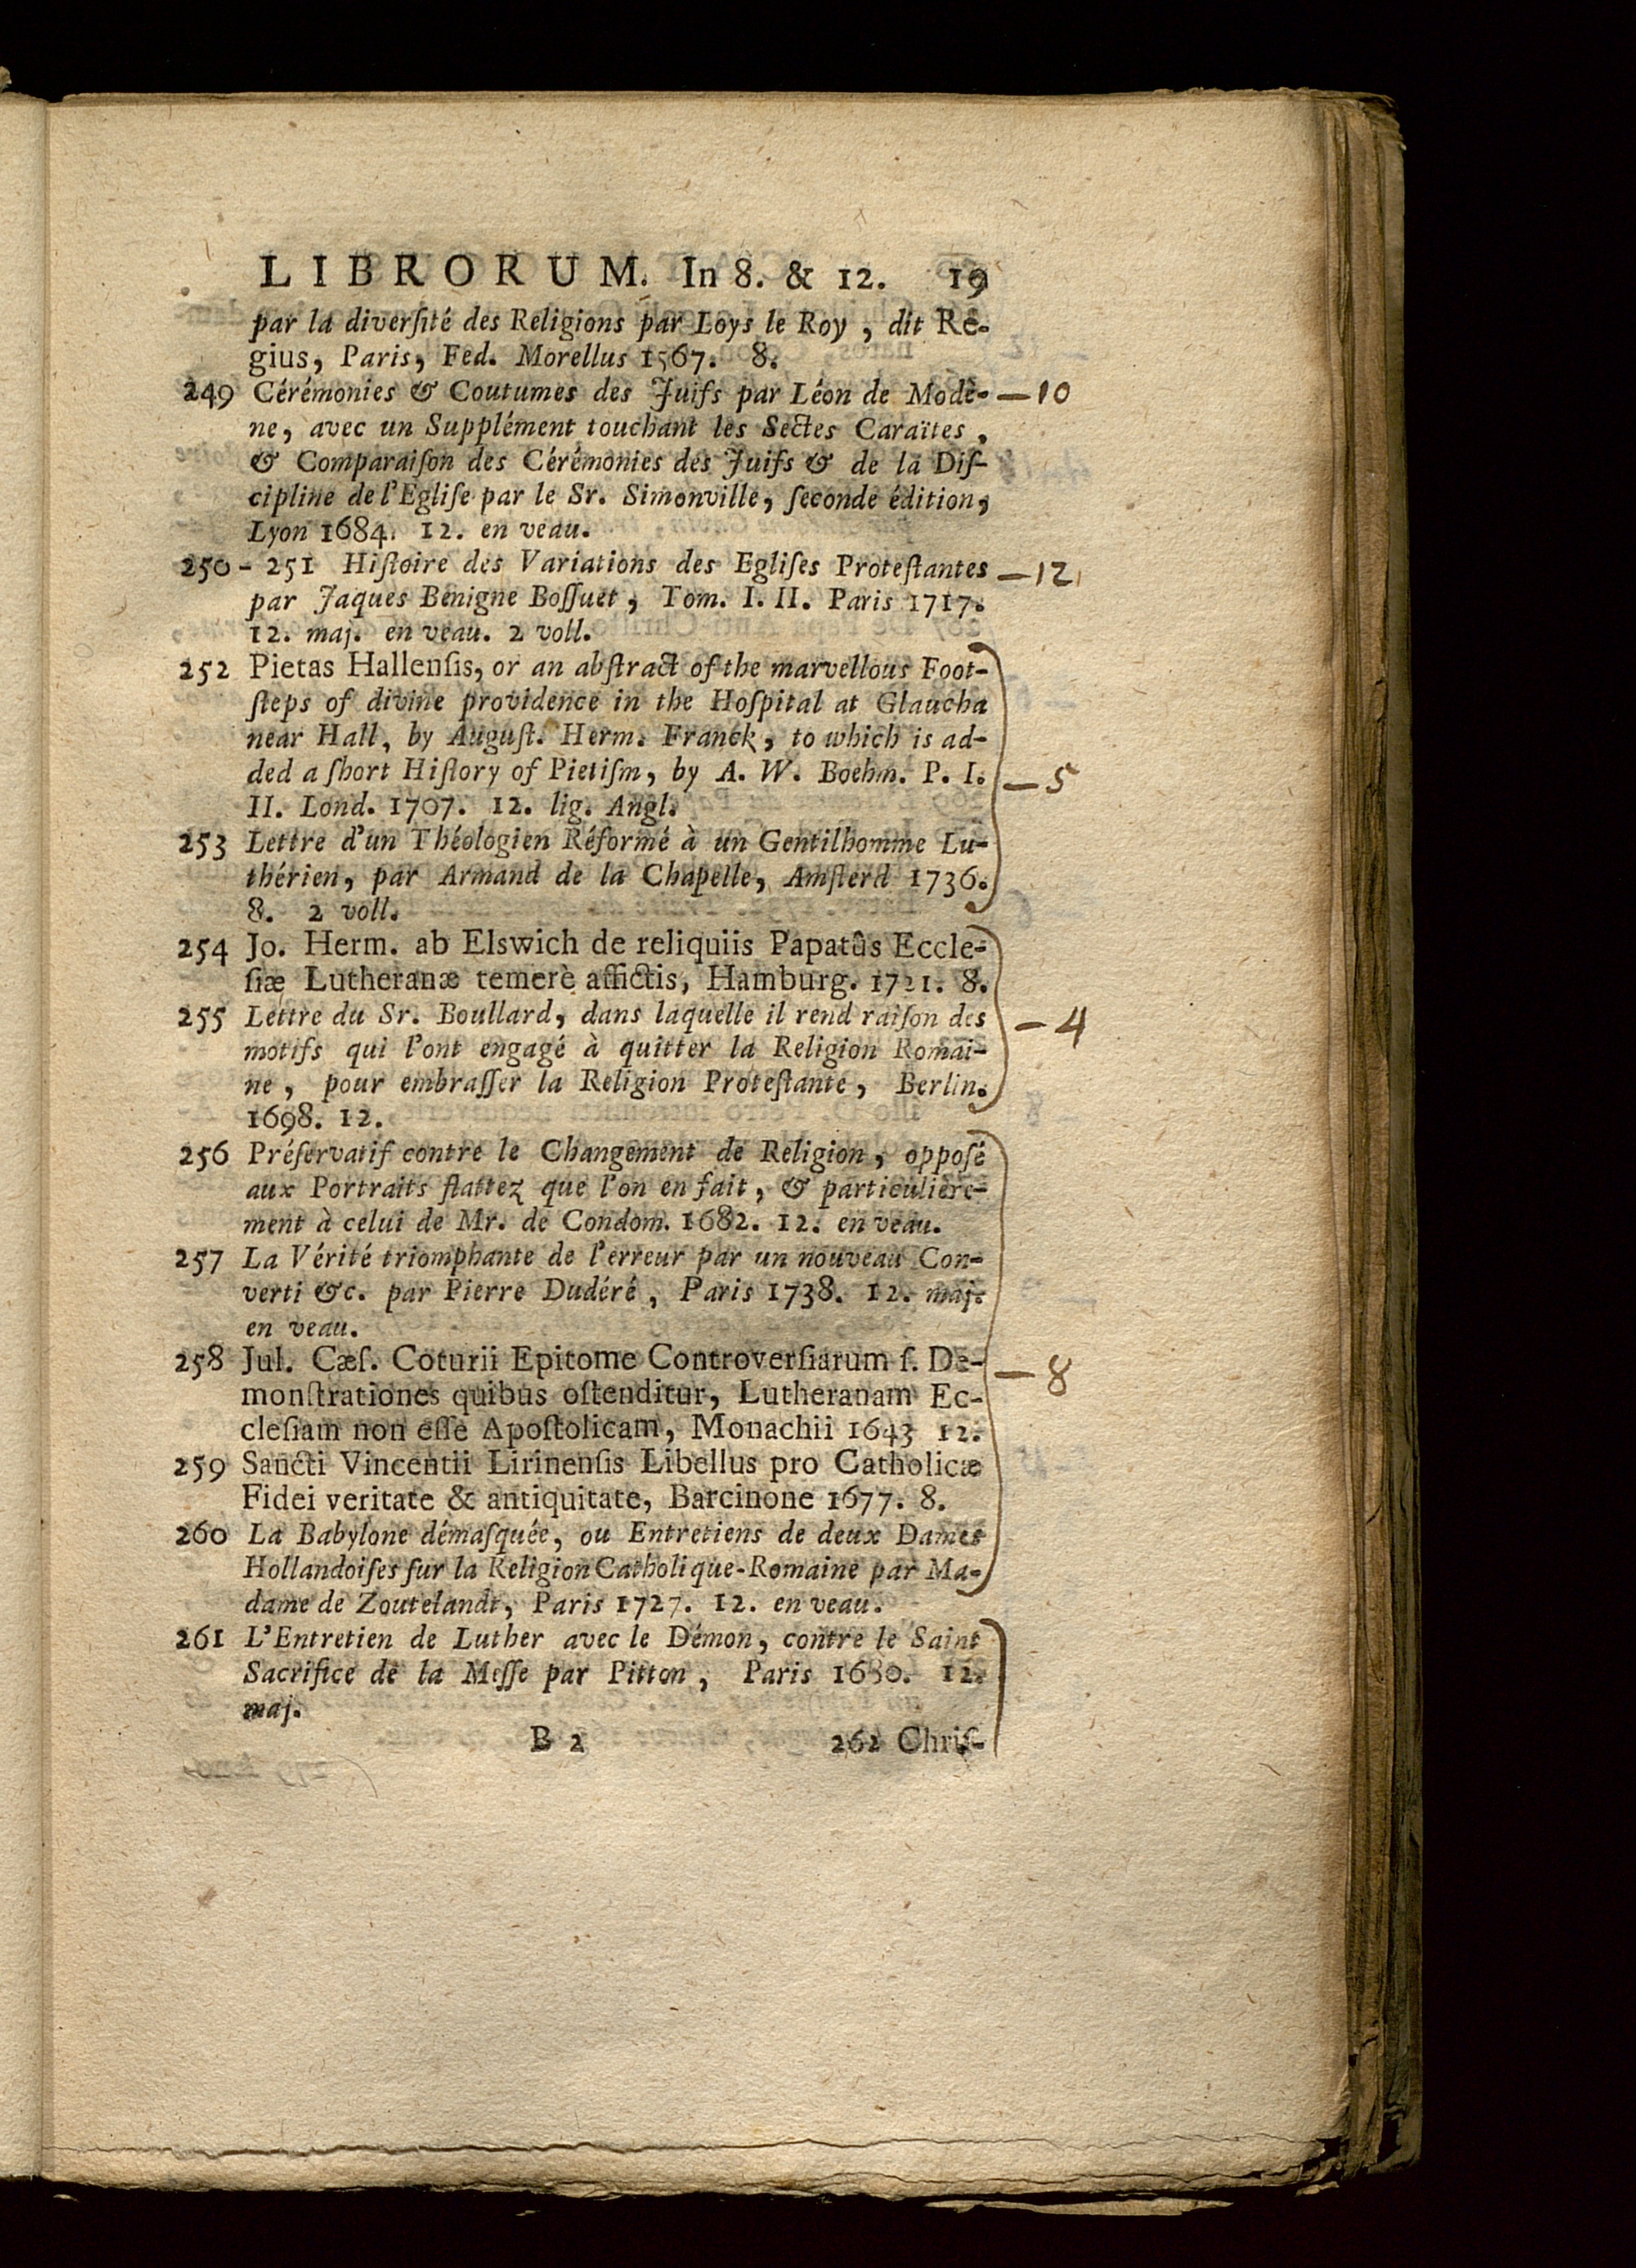 LIBRORUM. In 8. & 12. 19
par la diverſité des Religions par Loys le Roy, dit Re-
gius, Paris, Fed. Morellus 1567. 8.
249 Cérémonies & Coutumes des Juifs par Léon de Modè- — 10
ne, avec un Supplément touchant les Sectes Caraïtes,
& Comparaiſon des Cérémonies des Juifs & de la Diſ-
cipline de l'Egliſe par le Sr. Simonville, ſeconde édition,
Lyon 1684. 12. en veau.
250 - 251 Hiſtoire des Variations des Egliſes Proteſtantes — 12
par Jaques Benigne Boſſuet, Tom. I. II. Paris 1717.
12. maj. en veau. 2 voll.
252 Pietas Hallenſis, or an abſtract of the marvellous Foot-
ſteps of divine providence in the Hoſpital at Glaucha
near Hall, by Auguſt. Herm. Franck, to which is ad-
ded a ſhort Hiſtory of Pietiſm, by A. W. Boehm. P. I. — 5
II. Lond. 1707. 12. lig. Angl.
253 Lettre d'un Théologien Réformé à un Gentilhomme Lu-
thérien, par Armand de la Chapelle, Amſterd 1736.
8. 2 voll.
254 Jo. Herm. ab Elswich de reliquiis Papatûs Eccle-
ſiæ Lutheranæ temerè affictis, Hamburg. 1721. 8.
255 Lettre du Sr. Boullard, dans laquelle il rend raiſon des — 4
motifs qui l'ont engagé à quitter la Religion Romai-
ne, pour embraſſer la Religion Proteſtante, Berlin.
1698. 12.
256 Préſervatif contre le Changement de Religion, oppoſé
aux Portraits flattez que l'on en fait, & particulière-
ment à celui de Mr. de Condom. 1682. 12. en veau.
257 La Vérité triomphante de l'erreur par un nouveau Con-
verti &c. par Pierre Dudéré, Paris 1738. 12. maj.
en veau.
258 Jul. Cæſ. Coturii Epitome Controverſiarum ſ. De- — 8
monſtrationes quibus oſtenditur, Lutheranam Ec-
cleſiam non eſſe Apoſtolicam, Monachii 1643 12.
259 Sancti Vincentii Lirinenſis Libellus pro Catholicæ
Fidei veritate & antiquitate, Barcinone 1677. 8.
260 La Babylone démaſquée, ou Entretiens de deux Dames
Hollandoiſes ſur la Religion Catholique-Romaine par Ma-
dame de Zoutelandt, Paris 1727. 12. en veau.
261 L'Entretien de Luther avec le Démon, contre le Saint
Sacrifice de la Meſſe par Pitton, Paris 1680. 12.
maj.
B 2 262 Chriſ-